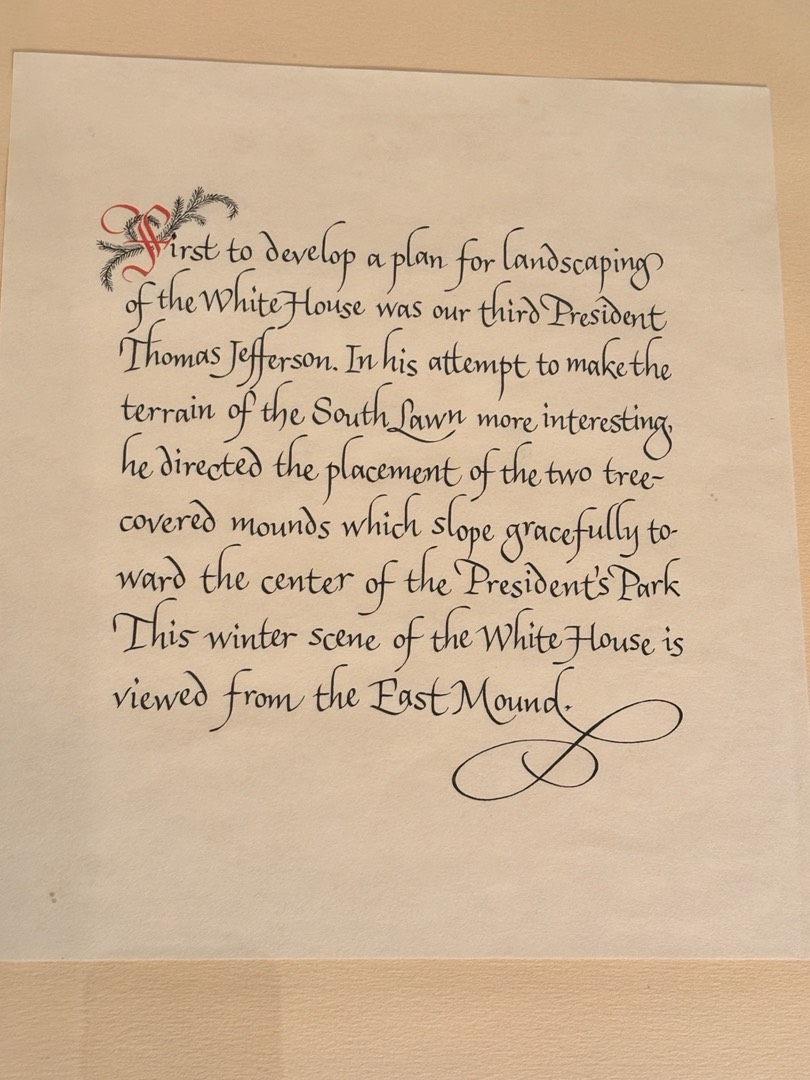 First to develop a plan for landscaping
of the White House was our third President
Thomas Jefferson. In his attempt to make the
terrain of the South Lawn more interesting,
he directed the placement of the two tree-
covered mounds which slope gracefully to-
ward the center of the President's Park
This winter scene of the White House is
viewed from the East Mound.